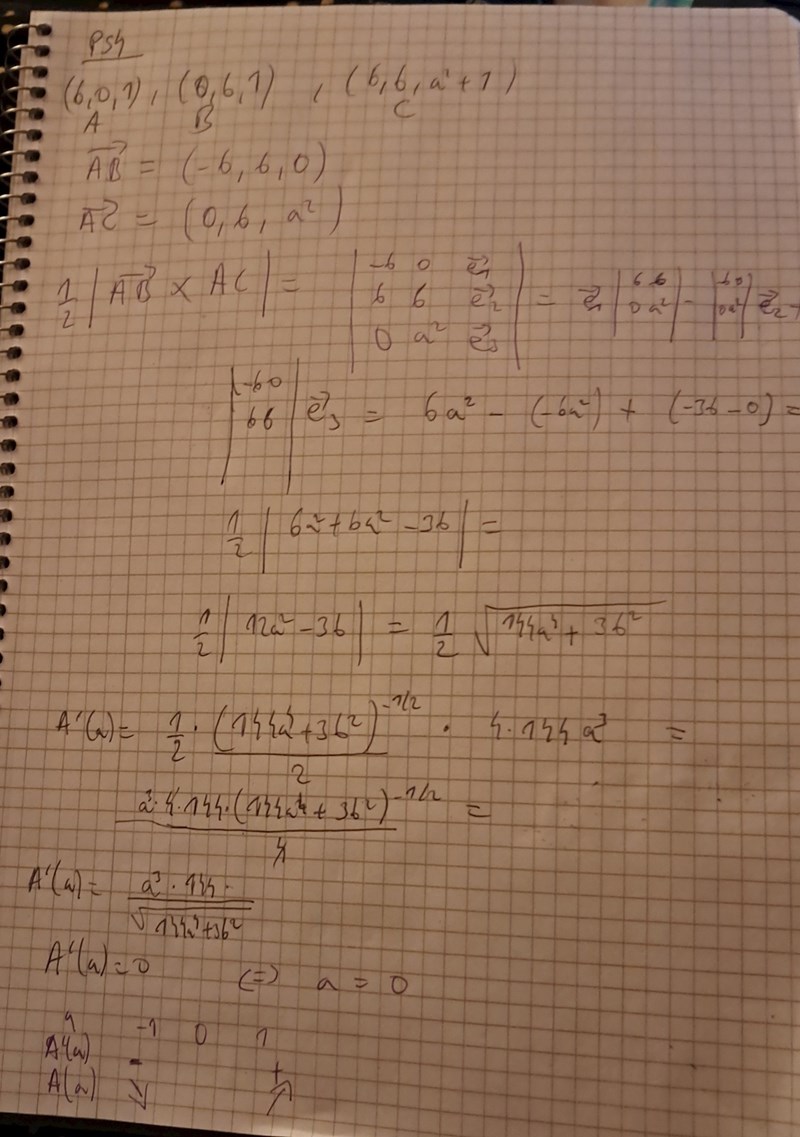 PS4
(6,0,1), (0,6,1), (6,6,a²+1)
A B C
AB→ = (-6, 6, 0)
AC→ = (0, 6, a²)
1/2 | AB→ × AC | = | -6 0 e₁→ ; 6 6 e₂→ ; 0 a² e₃→ | = e₁→ | 6 6 ; 0 a² | - | -6 0 ; 0 a² | e₂→ +
| -6 0 ; 6 6 | e₃→ = 6a² - (-6a²) + (-36-0) =
1/2 | 6a²+6a²-36 | =
1/2 | 12a²-36 | = 1/2 √(144a⁴ + 36²)
A'(a) = 1/2 · (144a⁴+36²)^(-1/2) / 2 · 4·144a³ =
a³·4·144·(144a⁴+36²)^(-1/2) / 4 =
A'(a) = a³·144· / √(144a⁴+36²)
A'(a)=0 (=) a = 0
a -1 0 1
A'(a) - +
A(a) ↘ ↗